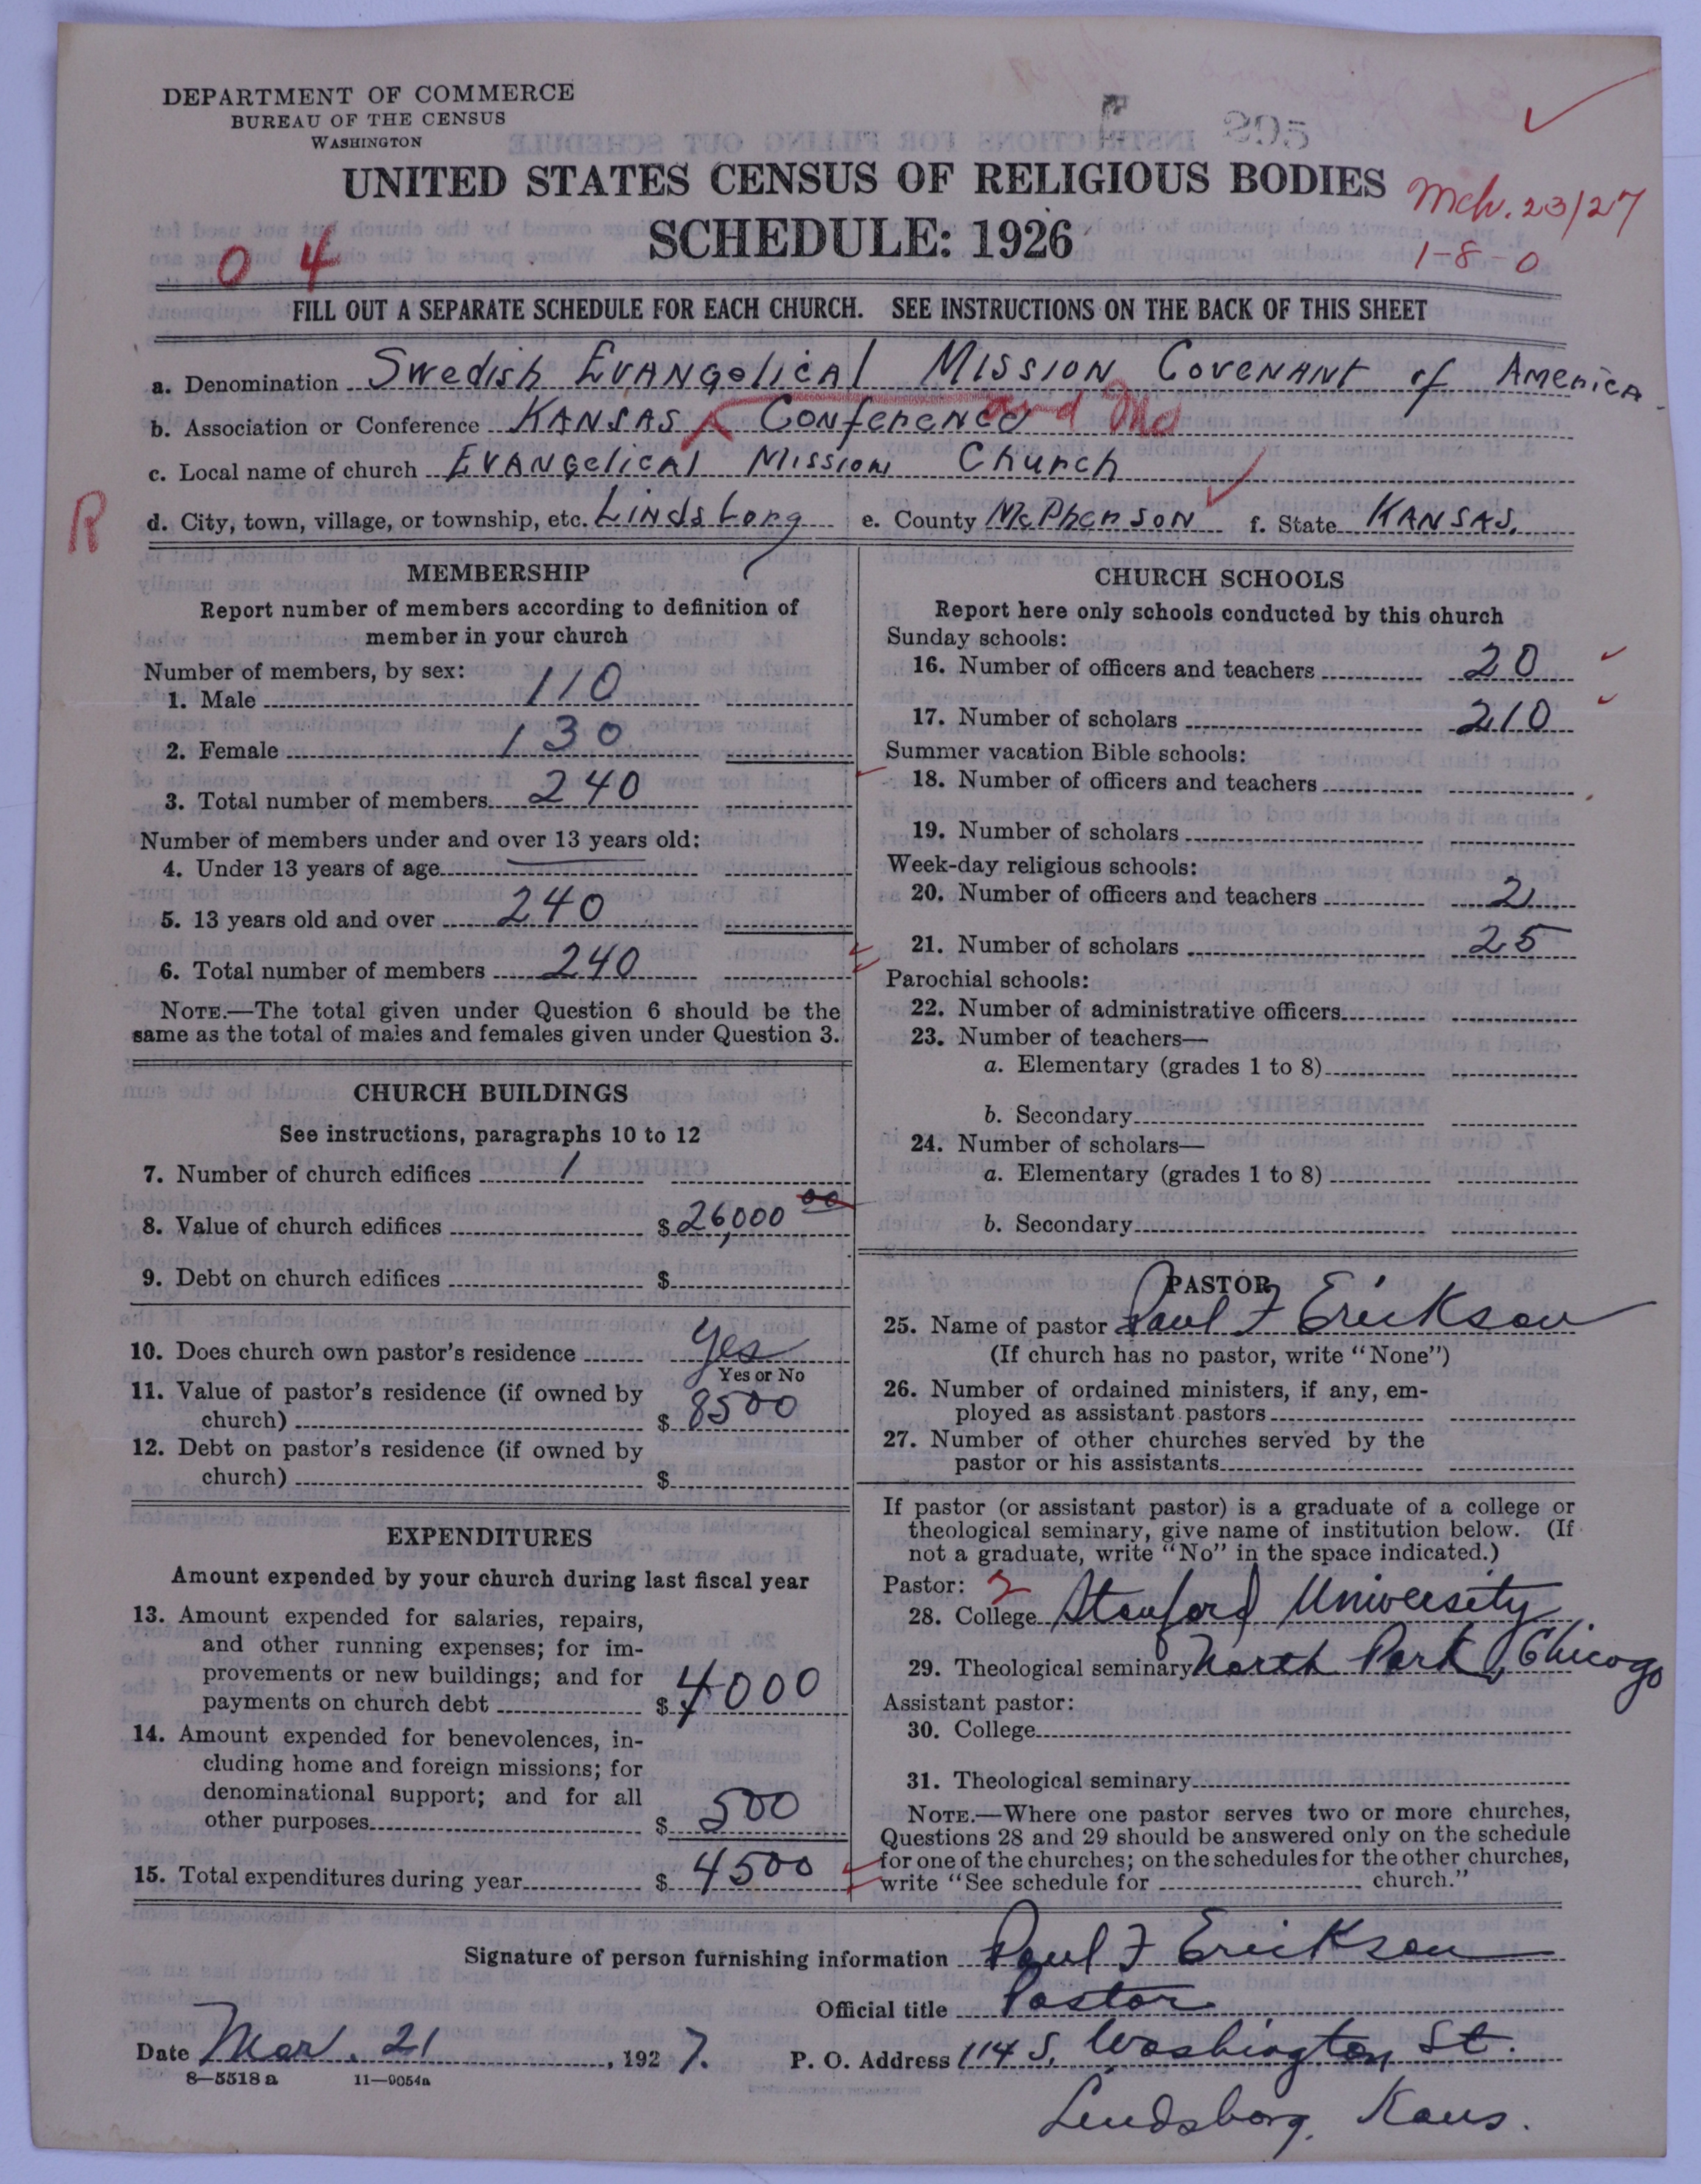 DEPARTMENT OF COMMERCE
BUREAU OF THE CENSUS
WASHINGTON
895
UNITED STATES CENSUS OF RELIGIOUS BODIES
Mch. 23/27
SCHEDULE: 1926
1-8-0
0 4
FILL OUT A SEPARATE SCHEDULE FOR EACH CHURCH. SEE INSTRUCTIONS ON THE BACK OF THIS SHEET
a. Denomination Swedish Evangelical Mission Covenant of America
b. Association or Conference Kansas Conference and Mo
c. Local name of church Evangelical Mission Church
R
d. City, town, village, or township, etc. Lindsborg e. County McPherson f. State Kansas.
MEMBERSHIP
Report number of members according to definition of
member in your church
Number of members, by sex:
1. Male 110
2. Female 130
3. Total number of members 240
Number of members under and over 13 years old:
4. Under 13 years of age
5. 13 years old and over 240
6. Total number of members 240
NOTE.—The total given under Question 6 should be the
same as the total of males and females given under Question 3.
CHURCH BUILDINGS
See instructions, paragraphs 10 to 12
7. Number of church edifices 1
8. Value of church edifices $ 26,000 00
9. Debt on church edifices $
10. Does church own pastor's residence Yes
Yes or No
11. Value of pastor's residence (if owned by
church) $ 8500
12. Debt on pastor's residence (if owned by
church) $
EXPENDITURES
Amount expended by your church during last fiscal year
13. Amount expended for salaries, repairs,
and other running expenses; for im-
provements or new buildings; and for
payments on church debt $ 4000
14. Amount expended for benevolences, in-
cluding home and foreign missions; for
denominational support; and for all
other purposes $ 500
15. Total expenditures during year $ 4500
CHURCH SCHOOLS
Report here only schools conducted by this church
Sunday schools:
16. Number of officers and teachers 20
17. Number of scholars 210
Summer vacation Bible schools:
18. Number of officers and teachers
19. Number of scholars
Week-day religious schools:
20. Number of officers and teachers 2
21. Number of scholars 25
Parochial schools:
22. Number of administrative officers
23. Number of teachers—
a. Elementary (grades 1 to 8)
b. Secondary
24. Number of scholars—
a. Elementary (grades 1 to 8)
b. Secondary
PASTOR
25. Name of pastor Paul F Erickson
(If church has no pastor, write "None")
26. Number of ordained ministers, if any, em-
ployed as assistant pastors
27. Number of other churches served by the
pastor or his assistants
If pastor (or assistant pastor) is a graduate of a college or
theological seminary, give name of institution below. (If
not a graduate, write "No" in the space indicated.)
Pastor: 2
28. College Stanford University
29. Theological seminary North Park, Chicago
Assistant pastor:
30. College
31. Theological seminary
NOTE.—Where one pastor serves two or more churches,
Questions 28 and 29 should be answered only on the schedule
for one of the churches; on the schedules for the other churches,
write "See schedule for church."
Signature of person furnishing information Paul F Erickson
Official title Pastor
Date Mar. 21, 1927. P. O. Address 114 S. Washington St.
8—5518 a 11—9054a
Lindsborg, Kans.